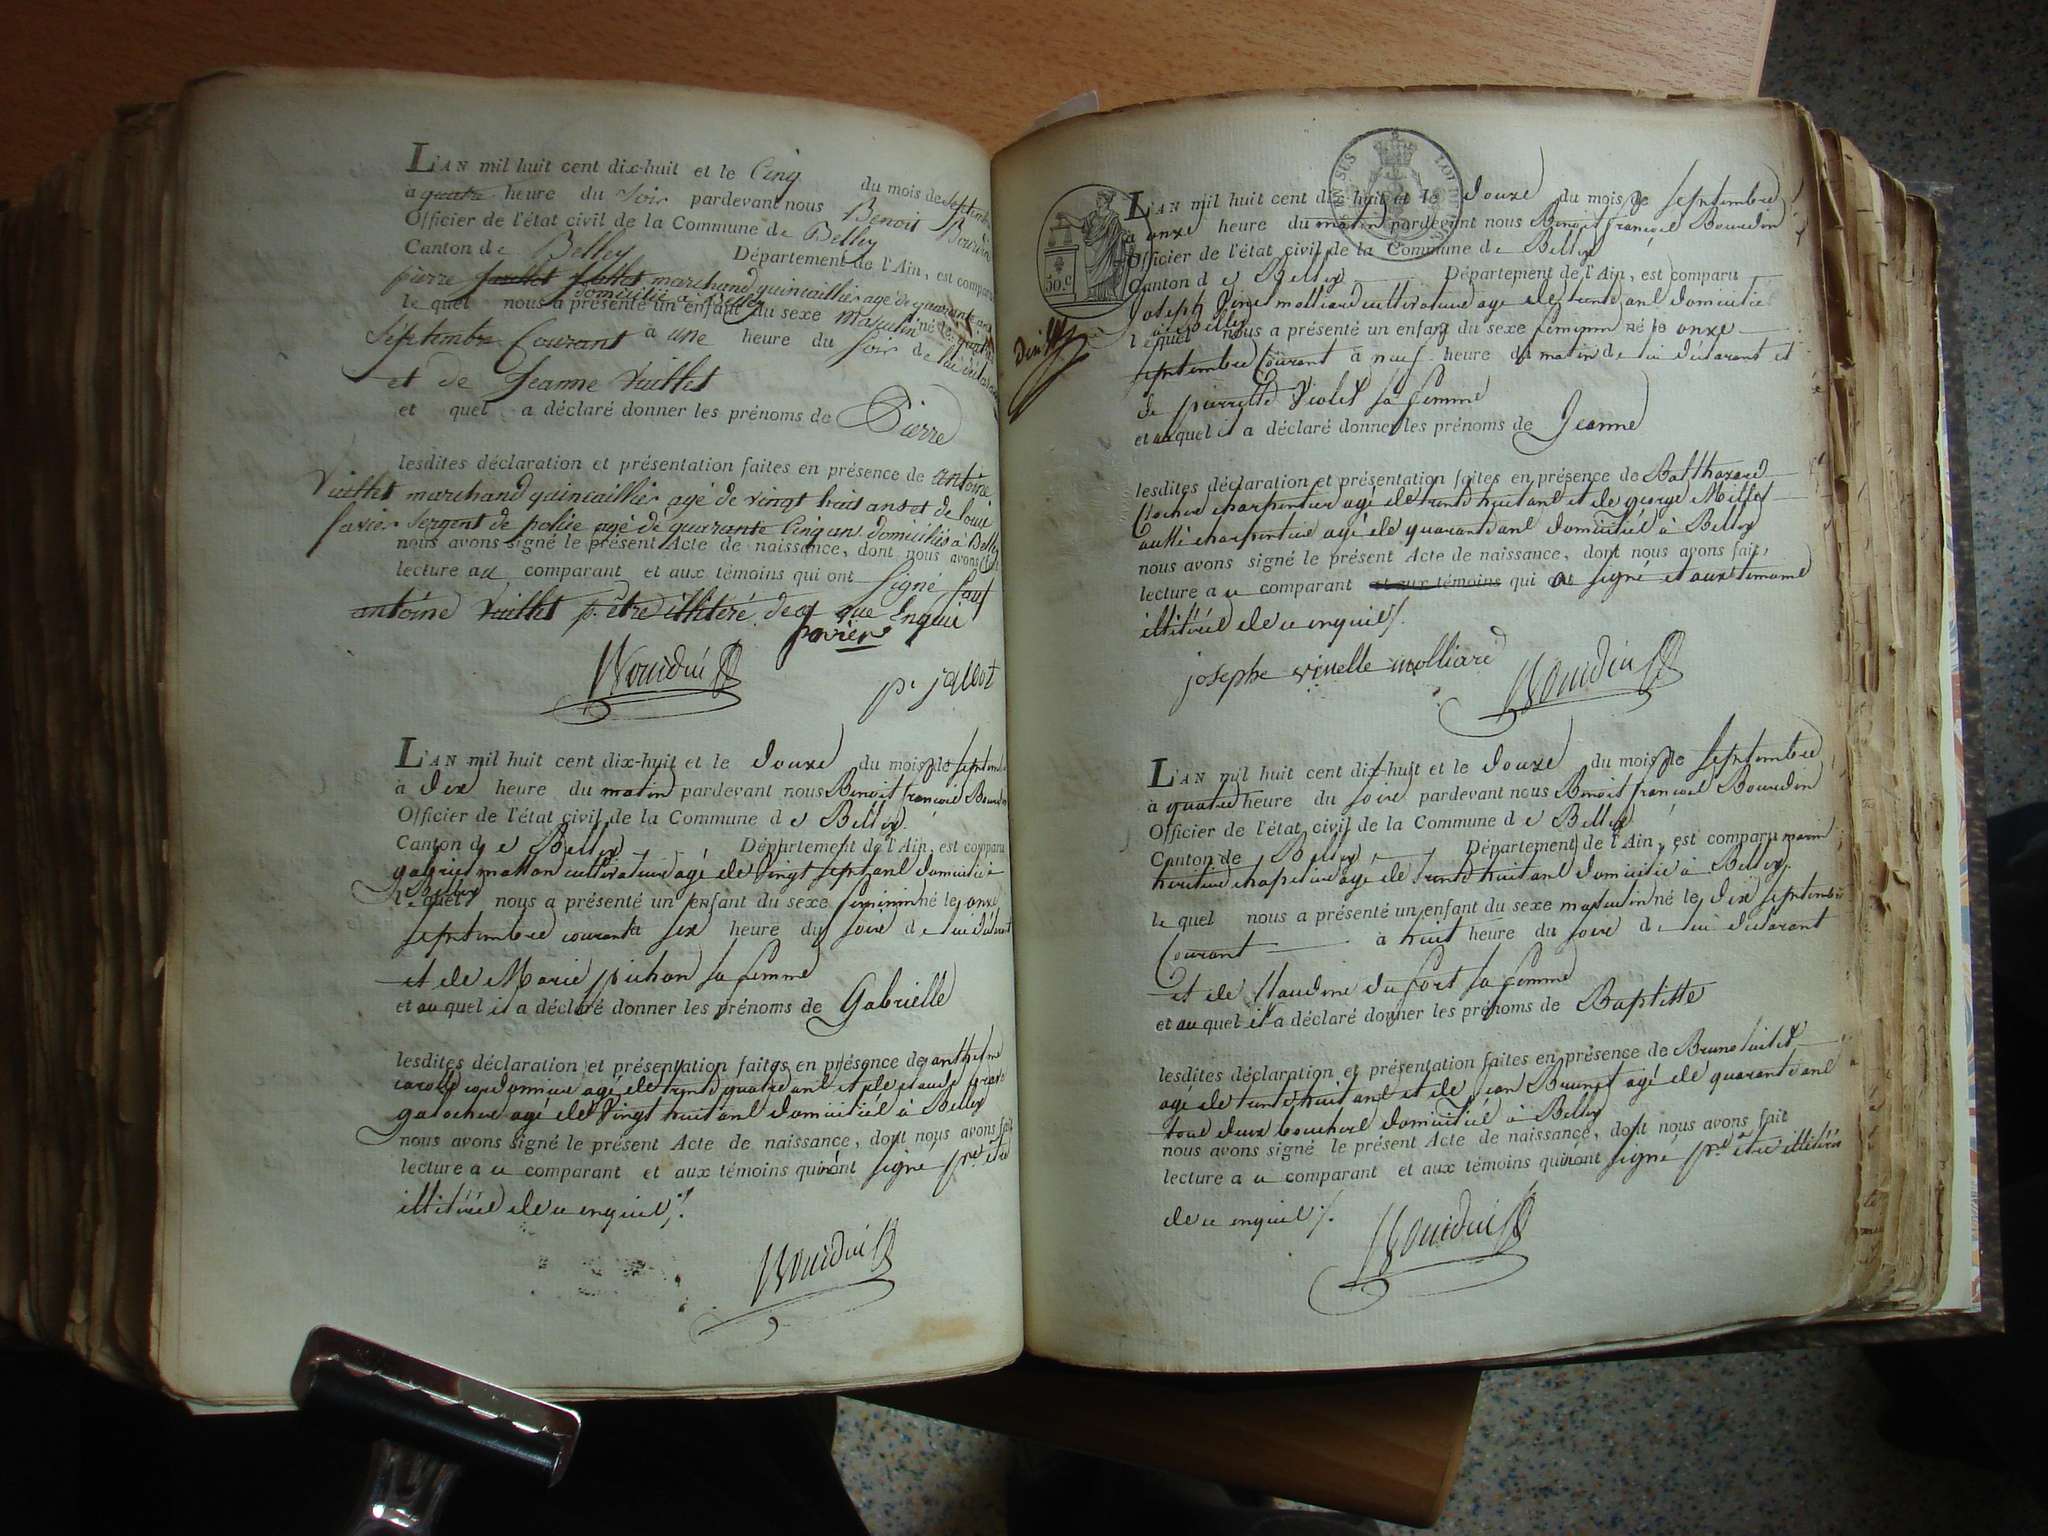 L'AN mil huit cent dix-huit et le Cinq du mois de Septembre
à quatre heure du Soir pardevant nous Benoit Bourdin
Officier de l'état civil de la Commune de Belley
Canton de Belley Département de l'Ain, est comparu
pierre marchand quincaillier agé de quarante ans
domicilié a Belley
le quel nous a présenté un enfant du sexe masculin né le quatre
Septembre Courant à une heure du Soir de lui déclarant
et de Jeanne Vuillet
et quel a déclaré donner les prénoms de Pierre
lesdites déclaration et présentation faites en présence de antoine
Vuillet marchand quincaillier agé de vingt huit ans et de louis
favier Sergent de police agé de quarante Cinq ans domiciliés a Belley
nous avons signé le présent Acte de naissance, dont nous avons fait
lecture au comparant et aux témoins qui ont Signé, Sauf
antoine Vuillet p. être illiteré de ce que Enquis
favier
Bourdin
pe jallot
L'AN mil huit cent dix-huit et le douze du mois de septembre
à dix heure du matin pardevant nous Benoit françois Bourdin
Officier de l'état civil de la Commune de Belley
Canton de Belley Département de l'Ain, est comparu
gabriel cultivateur agé de vingt sept ans domicilié à
Belley
lequel nous a présenté un enfant du sexe feminin né le onze
septembre courant à six heure du soire de lui déclarant
et de Marie pichon sa femme
et au quel il a déclaré donner les prénoms de Gabrielle
lesdites déclaration et présentation faites en présence de anthelme
cordonnier agé de trente quatre ans et de
agé de vingt huit ans domiciliés à Belley
nous avons signé le présent Acte de naissance, dont nous avons fait
lecture a ce comparant et aux témoins qui n'ont signé pr. etre
illitérés de ce enquis ./.
Bourdin
EN SUS
50.c
L'AN mil huit cent dix-huit et le douze du mois de septembre
à onze heure du matin pardevant nous Benoit françois Bourdin
Officier de l'état civil de la Commune de Belley
Canton de Belley Département de l'Ain, est comparu
Joseph molliard cultivateur agé de trente ans domicilié
à Belley
lequel nous a présenté un enfant du sexe feminin né le onze
septembre Courant à neuf heure du matin de lui déclarant et
de pierrette Violet sa femme
et auquel il a déclaré donner les prénoms de Jeanne
lesdites déclaration et présentation faites en présence de Balthazard
charpentier agé de trente huit ans et de george Millet
aussi charpentier agé de quarante ans domiciliés à Belley
nous avons signé le présent Acte de naissance, dont nous avons fait,
lecture a ce comparant et aux témoins qui a signé et aux temoins
illitérés de ce enquis ./.
josephe vinelle molliard
Bourdin
L'AN mil huit cent dix-huit et le douze du mois de septembre
à quatre heure du soire pardevant nous Benoit françois Bourdin
Officier de l'état civil de la Commune de Belley
Canton de Belley Département de l'Ain, est comparu
chapelier agé de trente huit ans domicilié à Belley
le quel nous a présenté un enfant du sexe masculin né le dix septembre
Courant à huit heure du soire de lui déclarant
et de Claudine du fort sa femme
et au quel il a déclaré donner les prénoms de Baptiste
lesdites déclaration et présentation faites en présence de Bruno
agé de trente huit ans et de jean Brunet agé de quarante ans
tous deux bouchers domiciliés à Belley
nous avons signé le présent Acte de naissance, dont nous avons fait
lecture a ce comparant et aux témoins qui n'ont signé pr. etre illitérés
de ce enquis ./.
Bourdin